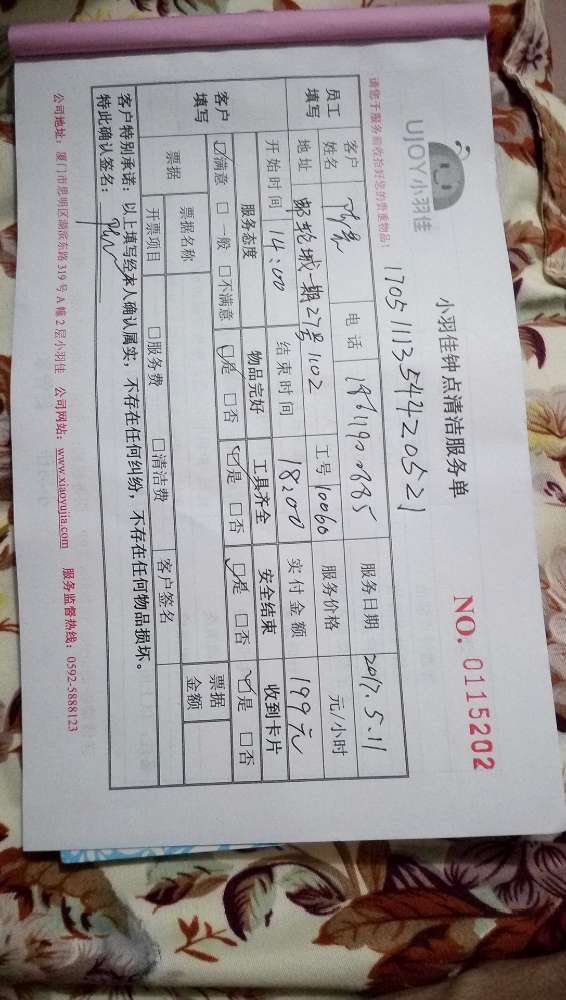 UJOY小羽佳
小羽佳钟点清洁服务单
NO. 0115202
请您于服务前收拾好您的贵重物品！
17051113544420521
员工填写 客户姓名 电话 服务日期 2017.5.11
地址 邮轮城一期27号1102 工号 10060 服务价格 元/小时
开始时间 14:00 结束时间 18:00 实付金额 199元
客户填写 服务态度 物品完好 工具齐全 安全结束 收到卡片
☑满意 □一般 □不满意 ☑是 □否 ☑是 □否 ☑是 □否 ☑是 □否
票据 票据名称 票据金额
开票项目 □服务费 □清洁费 客户签名
客户特别承诺：以上填写经本人确认属实，不存在任何纠纷，不存在任何物品损坏。
特此确认签名：
公司地址：厦门市思明区湖滨东路319号A幢2层小羽佳 公司网站：www.xiaoyujia.com 服务监督热线：0592-5888123